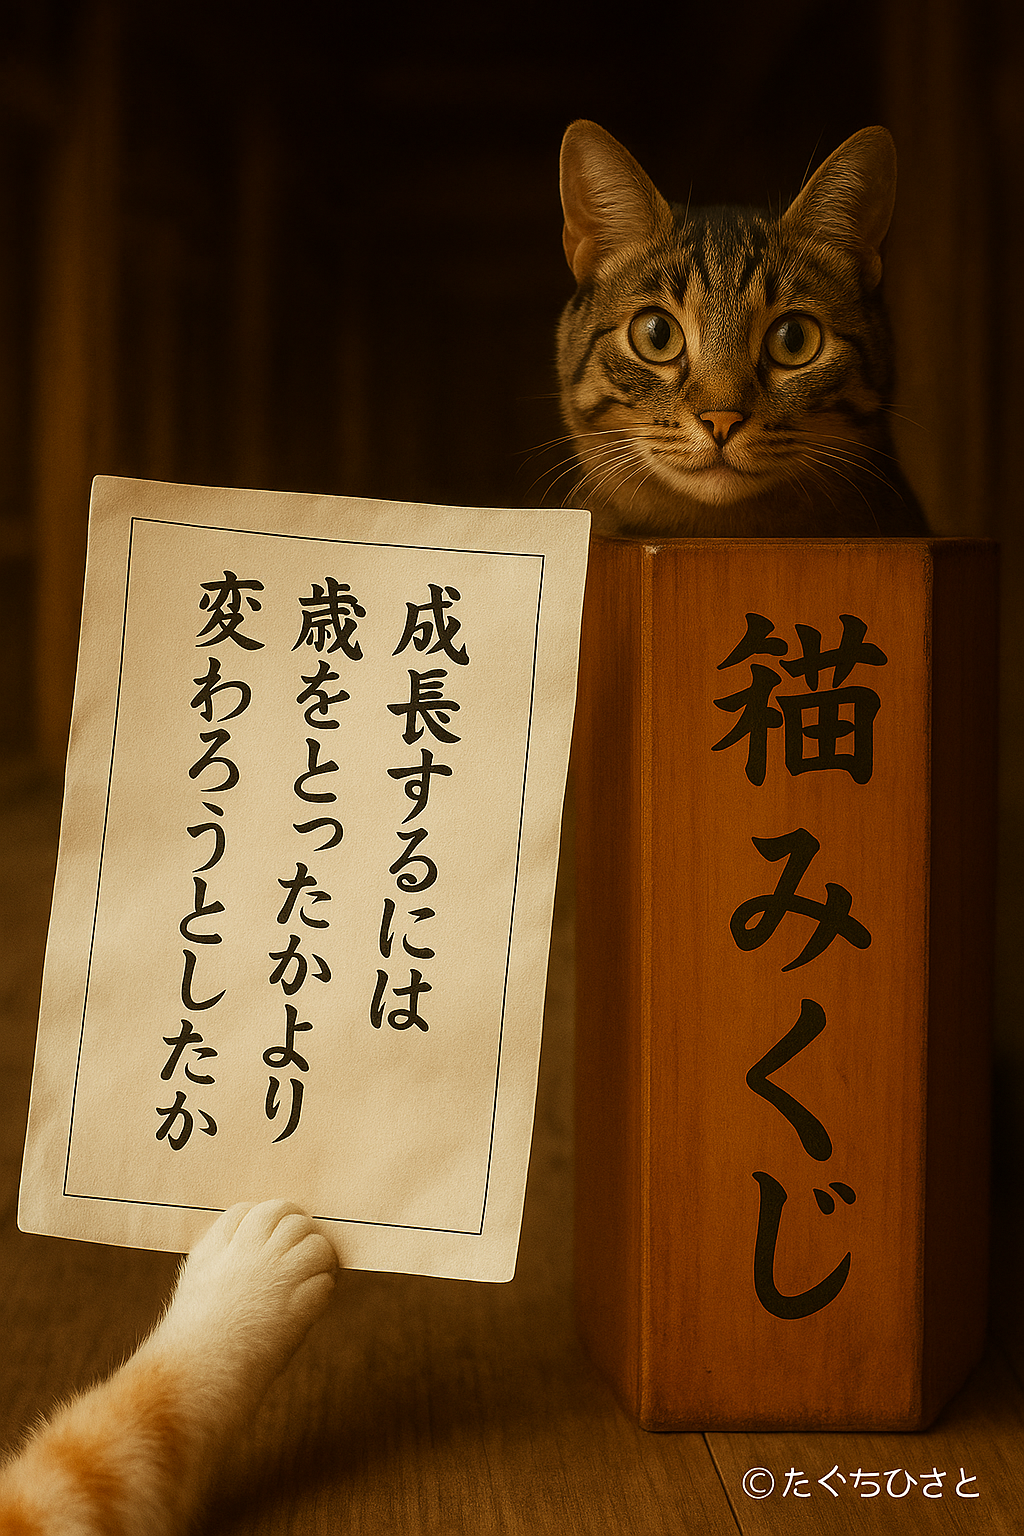 成長するには
歳をとったかより
変わろうとしたか
猫みくじ
©たぐちひさと